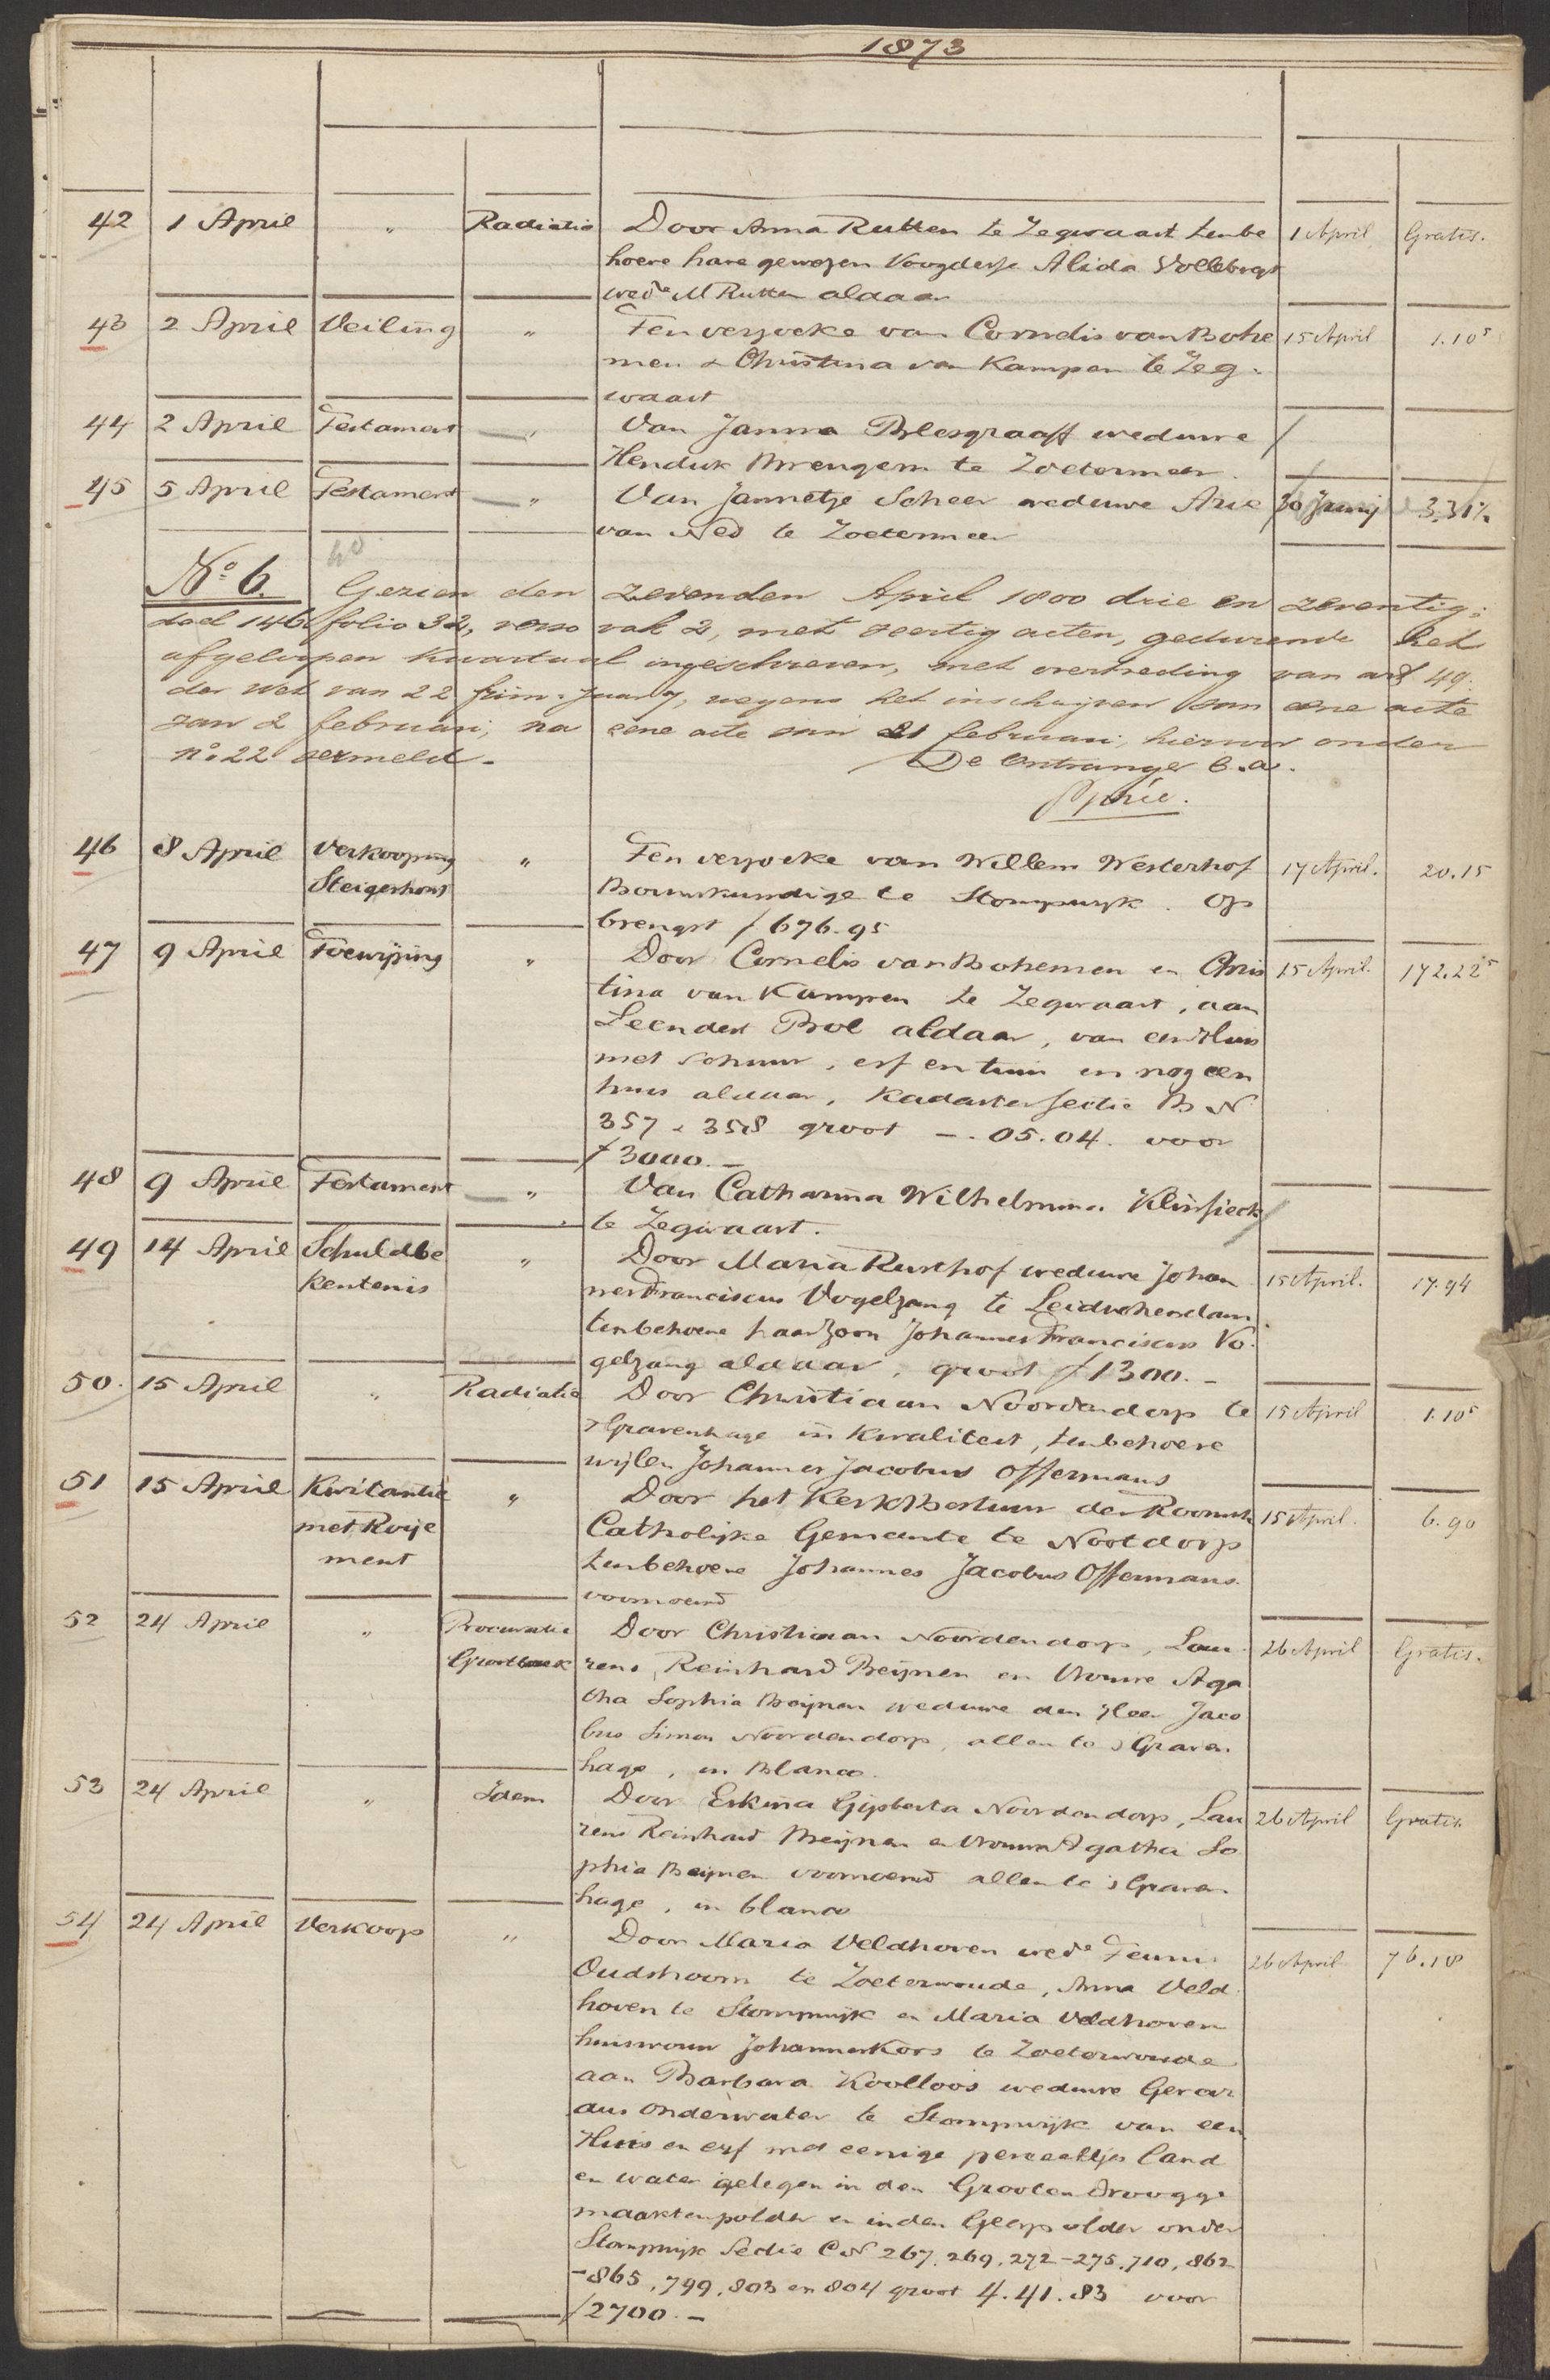 1873
42 1 April " Radiatie Door Anna Rutten te Zegwaart tenbe 1 April Gratis.
hoeve hare gewezen Voogdesse Alida Vollebregt
wede M Rutten aldaar
43 2 April Veiling " Ten verzoeke van Cornelis van Bohe 15 April 1.10⁵
men & Christina van Kampen te Zeg-
waart
44 2 April Testament " Van Janna Blesgraaff weduwe /
Hendrik Brengem te Zoetermeer.
45 5 April Testament " Van Jannetje Scheer weduwe Arie 30 Junij 3.31½
van Ned te Zoetermeer
No. 6. Gezien den zevenden April 1800 drie en zeventig;
deel 146 folio 32, verso vak 2, met veertig acten, gedurende het
afgeloopen kwartaal ingeschreven, met overtreding van art 49.
der Wet van 22 frim. jaar 7, wegens het inschrijven van eene acte
van 2 februari, na eene acte van 21 februari, hiervoor onder
no. 22 vermeld.- De Ontvanger b.a.
46 8 April Verkooping " Ten verzoeke van Willem Westerhof 17 April. 20.15
Steigerhout Bouwkundige te Stompwyk. Op
brengst f 676.95
47 9 April Toewijzing " Door Cornelis van Bohemen en Chris 15 April. 172.22⁵
tina van Kampen te Zegwaart, aan
Leendert Bol aldaar, van een Huis
met schuur, erf en tuin en nog een
huis aldaar, Kadaster sectie B N
357 & 358 groot -.05.04. voor
f 3000.-
48 9 April Testament " Van Catharina Wilhelmina Klinsieck /
te Zegwaart.
49 14 April Schuldbe " Door Maria Rusthof weduwe Johan 15 April. 17.94
kentenis nes Franciscus Vogelzang te Leidschendam
tenbehoeve haar zoon Johannes Franciscus Vo-
gelzang aldaar, groot f 1300.-
50. 15 April " Radiatie Door Christiaan Noordendorp te 15 April 1.10⁵
sGravenhage in kwaliteit, tenbehoeve
wijlen Johannes Jacobus Offermans
51 15 April Kwitantie " Door het Kerkbestuur der Roomsch 15 April. 6.90
met Roije Catholijke Gemeente te Nootdorp
ment tenbehoeve Johannes Jacobus Offermans.
voornoemd
52 24 April " Procuratie Door Christiaan Noordendorp, Lau- 26 April Gratis.
Grootboek rens Reinhard Beijnen en Vrouwe Aga
tha Sophia Beijnen weduwe den Heer Jaco
bus Simon Noordendorp, allen te sGraven
hage, in Blanco.
53 24 April " Idem Door Eskina Gijsberta Noordendorp, Lau 26 April Gratis
rens Reinhard Beijnen en Vrouwe Agatha So
phia Beijnen voornoemd allen te sGraven
hage, in blanco
54 24 April Verkoop " Door Maria Veldhoven wede Teunis 26 April 76.18
Oudshoorn te Zoeterwoude, Anna Veld
hoven te Stompwijk en Maria Veldhoven
huisvrouw Johannes Kors te Zoeterwoude
aan Barbara Koolloos weduwe Gerar
dus Onderwater te Stompwijk van een
Huis en erf met eenige perceeltjes land
en water gelegen in den Grooten Droogge
maakten polder en in den Geerpolder onder
Stompwijk Sectie C N 267, 269, 272-275, 710, 862
-865, 799, 803 en 804 groot 4.41.83 voor
f 2700.-